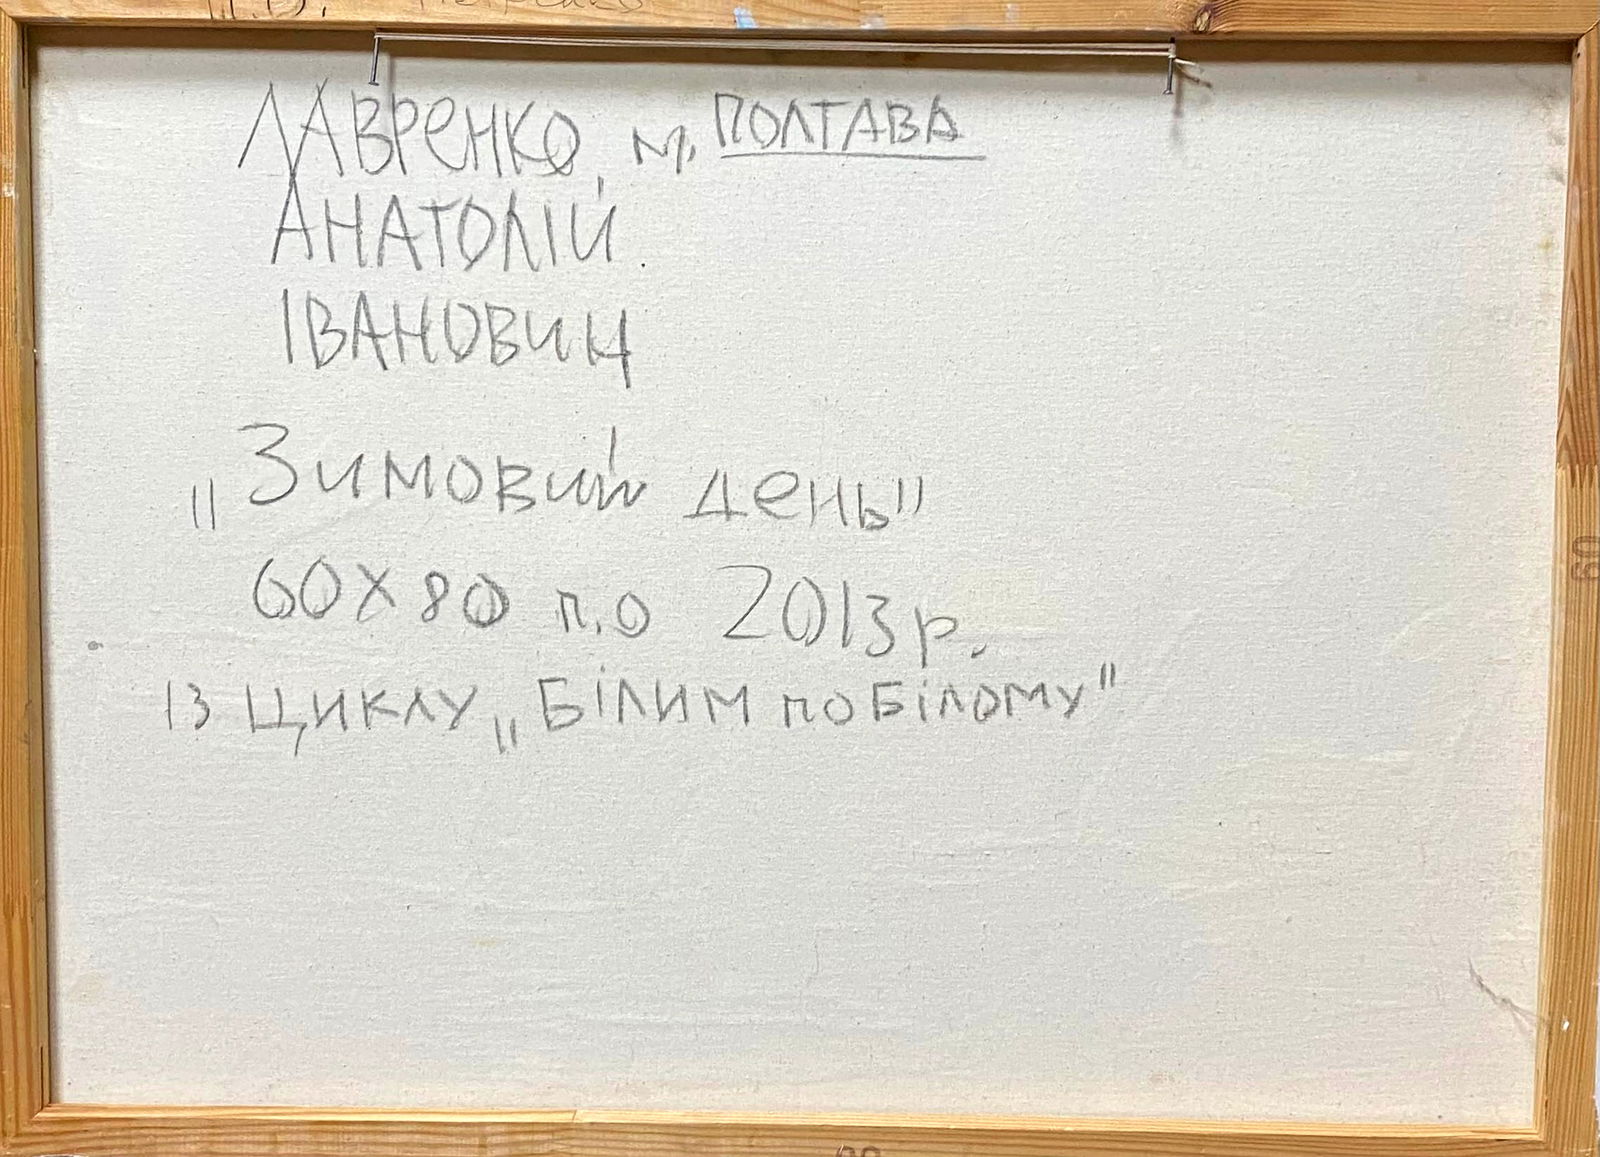 ЛАВРЕНКО, м. ПОЛТАВА
АНАТОЛІЙ
ІВАНОВИЧ
„Зимовий день"
60X80 п.о 2013р.
ІЗ ЦИКЛУ „БІЛИМ ПО БІЛОМУ"
60